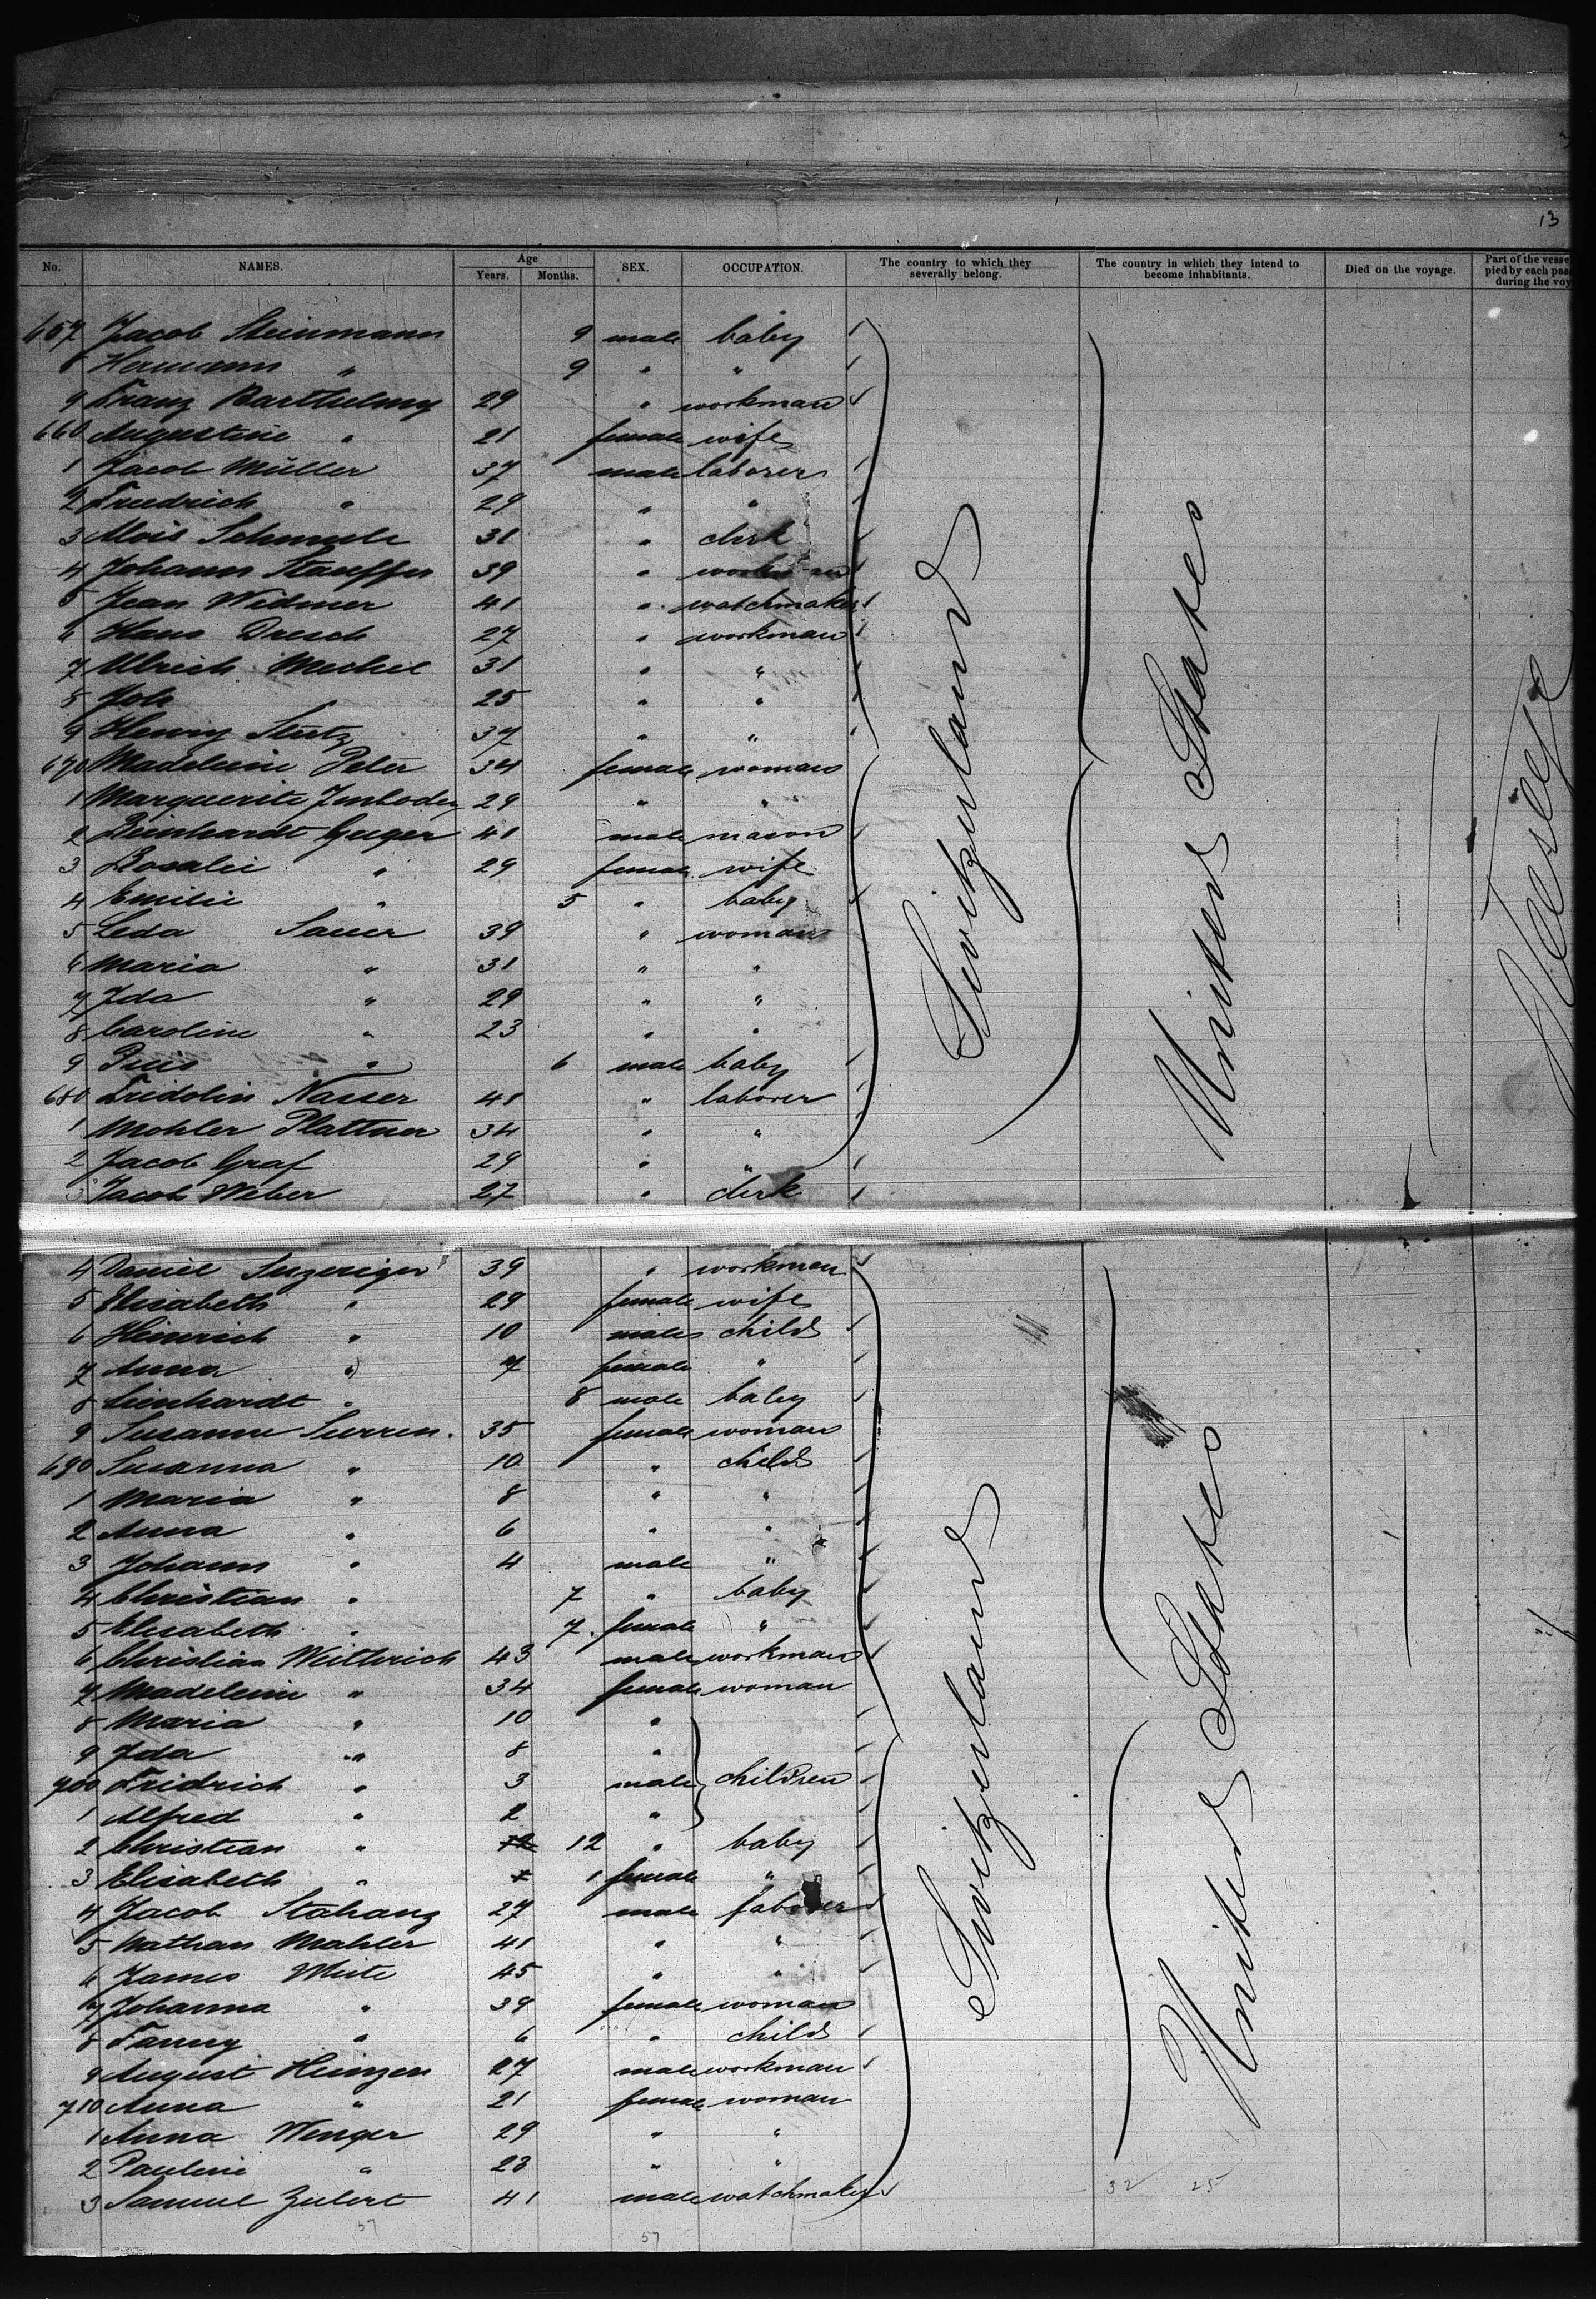 13
No. NAMES. Age Years. Months. SEX. OCCUPATION. The country to which they severally belong. The country in which they intend to become inhabitants. Died on the voyage. Part of the vesse pied by each pas during the voy
657 Jacob Steinmann 9 male baby
8 Hermann " 9 " "
9 Franz Barthelmy 29 " workman
660 Augustine " 21 female wife
1 Jacob Müller 37 male laborer
2 Friedrich " 29 " "
3 Alois Schmule 31 " clerk
4 Johann Stauffer 39 "
5 Jean Widmer 41 " watchmaker
6 Hans Dresch 27 " workman
7 Ulrich Michel 31 " "
8 Joh 25 " "
9 Henry Stutz 37 " "
670 Madeleine Peter 34 female woman
1 Marguerite Imboden 29 " "
2 Reinhardt Guger 41 male mason
3 Rosalie " 29 female wife
4 Emilie " 5 " baby
5 Leda Sauer 39 " woman
6 Maria " 31 " "
7 Ida " 29 " "
8 Caroline " 23 " "
9 " 6 male baby
680 Fridolin Nasser 41 " laborer
1 Mohler Plattner 34 " "
2 Jacob Graf 29 " "
3 Jacob Weber 27 " clerk
Switzerland
United States
4 Daniel 39 " workman
5 Elisabeth " 29 female wife
6 Heinrich " 10 male child
7 Anna " 7 female "
8 Leinhardt " 8 male baby
9 Susanne Surren 35 female woman
690 Susanna " 10 " child
1 Maria " 8 " "
2 Anna " 6 " "
3 Johann " 4 male "
4 Christian " 7 " baby
5 Elisabeth " 7 female "
6 Christian Witterich 43 male workman
7 Madeleine " 34 female woman
8 Maria " 10 "
9 Ida " 8 "
700 Fridrich " 3 male children
1 Alfred " 2 "
2 Christian " 12 " baby
3 Elisabeth " 1 female "
4 Jacob Stahang 27 male laborer
5 Nathan Mahler 41 " "
6 James Mite 45 " "
7 Johanna " 39 female woman
8 Fanny " 6 " child
9 August Heinzen 27 male workman
710 Anna " 21 female woman
1 Anna Wenger 29 " "
2 Pauline " 23 " "
3 Samuel Zulert 41 male watchmaker
Switzerland
United States
32 25
57 57